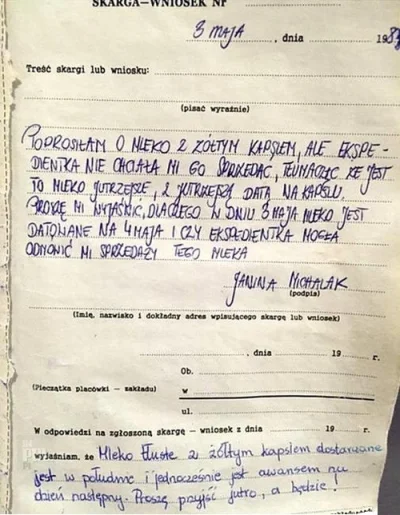 SKARGA—WNIOSEK Nr
3 MAJA , dnia 198
Treść skargi lub wniosku:
(pisać wyraźnie)
POPROSIŁAM O MLEKO Z ŻÓŁTYM KAPSLEM, ALE EKSPE-
DIENTKA NIE CHCIAŁA MI GO SPRZEDAĆ, TŁUMACZĄC ŻE JEST
TO MLEKO JUTRZEJSZE, Z JUTRZEJSZĄ DATĄ NA KAPSLU.
PROSZĘ MI WYJAŚNIĆ, DLACZEGO W DNIU 3 MAJA MLEKO JEST
DATOWANE NA 4 MAJA I CZY EKSPEDIENTKA MOGŁA
ODMÓWIĆ MI SPRZEDAŻY TEGO MLEKA
JANINA MICHALAK
(podpis)
(Imię, nazwisko i dokładny adres wpisującego skargę lub wniosek)
, dnia 19 r.
Ob.
(Pieczątka placówki — zakładu) w
ul.
W odpowiedzi na zgłoszoną skargę — wniosek z dnia 19 r.
wyjaśniam, że Mleko tłuste z żółtym kapslem dostarczane
jest w południe i jednocześnie jest awansem na
dzień następny. Proszę przyjść jutro, a będzie!